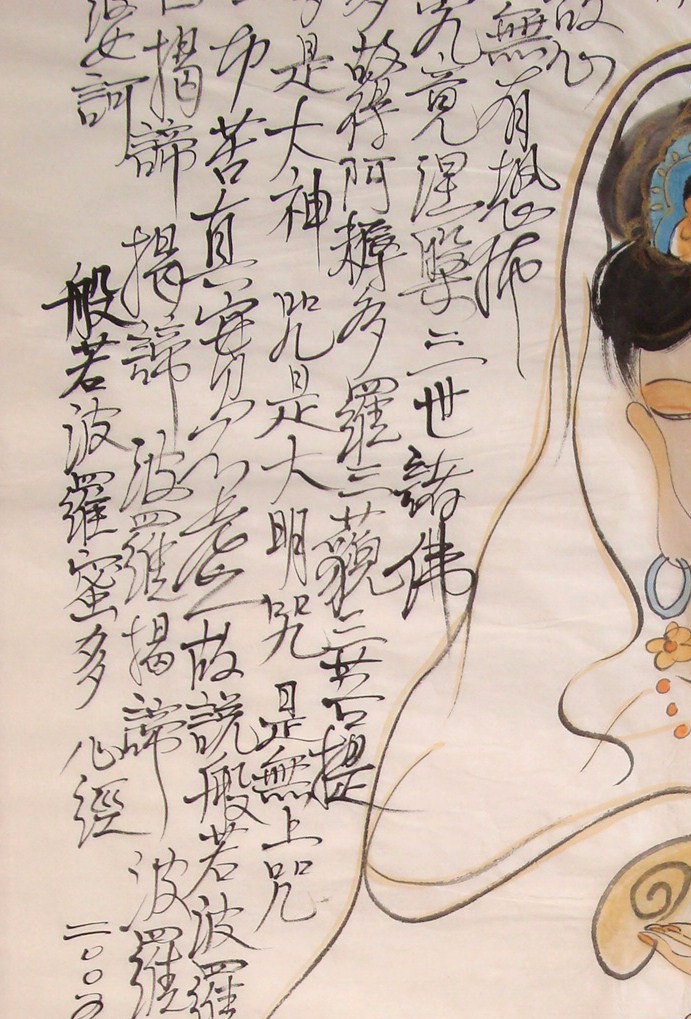 故心
無有恐怖
究竟涅槃三世諸佛
多故得阿耨多羅三藐三菩提
多是大神咒是大明咒是無上咒
切苦真實不虛故說般若波羅
曰揭諦揭諦波羅揭諦波羅
婆訶 般若波羅蜜多心經 二〇〇